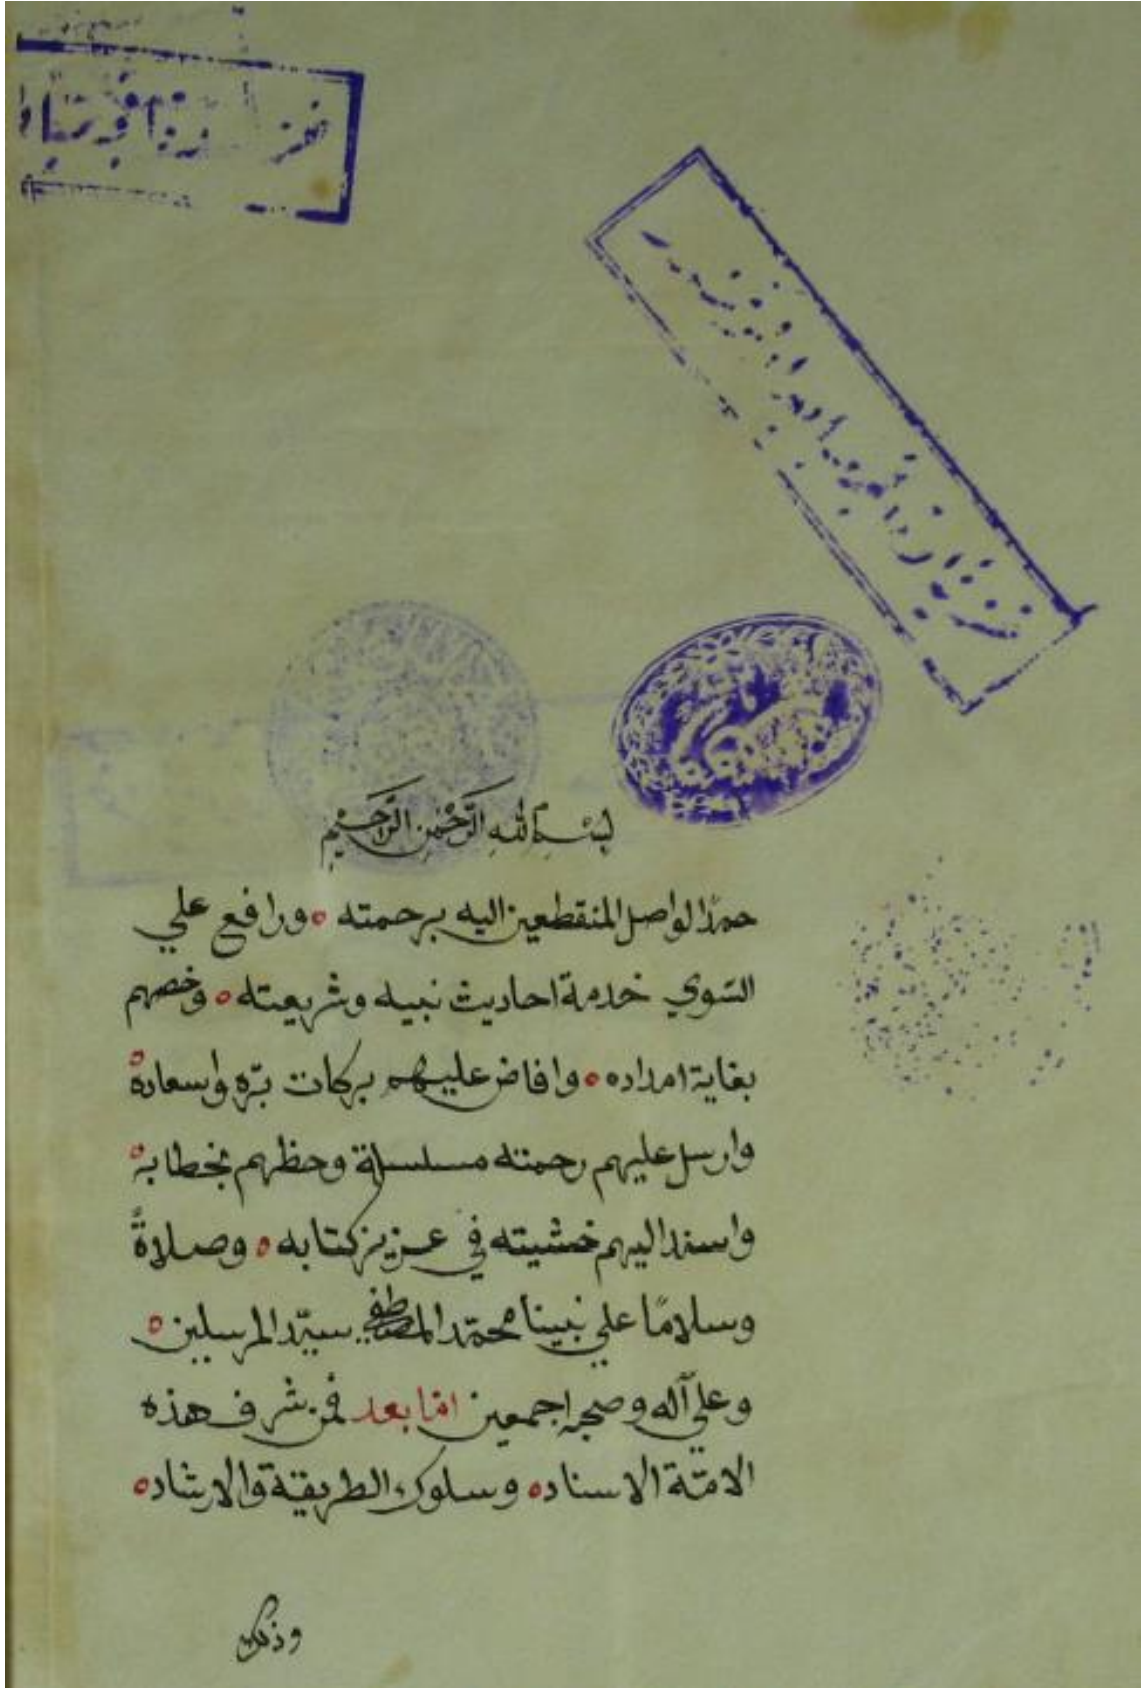 بسم اللهِ الرَّحْمٰنِ الرَّحِيْمِ
حمدًا لواصل المنقطعين اليه برحمته ٥ ورافع علي
السّوي خدمة احاديث نبيه وشريعته ٥ وخصهم
بغاية امداده ٥ وافاض عليهم بركات برّه واسعاده ٥
وارسل عليهم رحمته مسلسلة وحظهم بخطابه ٥
واسند اليهم خشيته في عزيز كتابه ٥ وصلاةً
وسلامًا علي نبينا محمّد المصطفي سيّد المرسلين ٥
وعلي آله وصحبه اجمعين امّا بعد فمن شرف هذه
الامّة الاسناد ٥ وسلوك الطريقة والارشاد ٥
وذلك